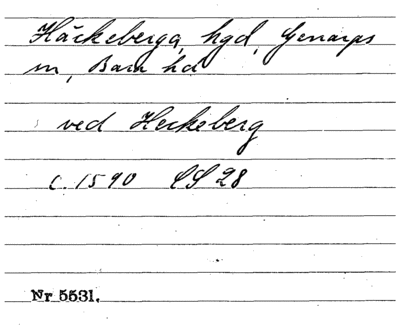 Häckeberga, hgd, Genarps
sn, Bara hd
ved Heckeberg
c. 1590 SS 28
Nr 5531.